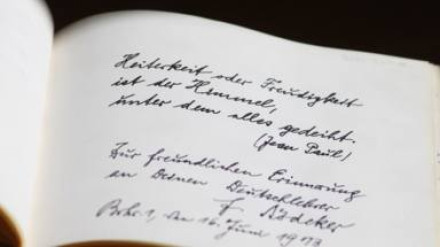 Heiterkeit oder Freudigkeit
ist der Himmel,
unter dem alles gedeiht.
(Jean Paul)
Zur freundlichen Erinnerung
an Deinen Deutschlehrer
F. Rädeker
den 16. Juni